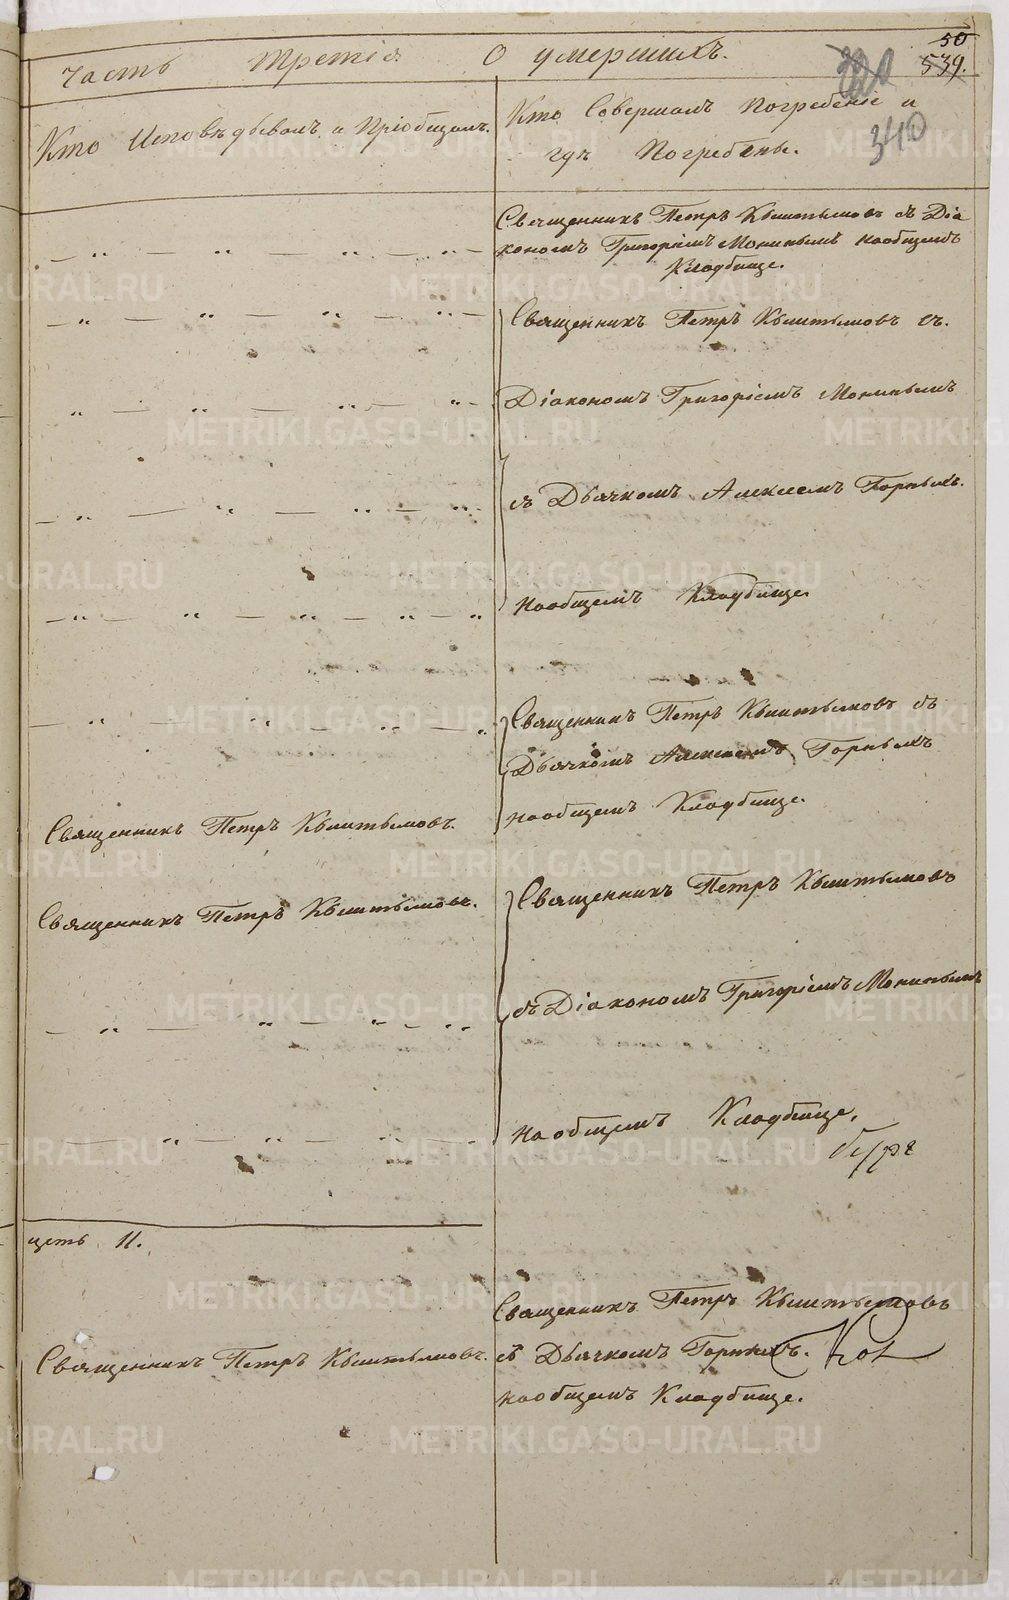 50
Часть третiя О умершихъ. 539.
340
Кто Исповѣдывалъ и Прiобщалъ.
Кто Совершалъ Погребенiе и
гдѣ Погребены.
Священникъ Петръ Кыштымовъ съ Дiа
кономъ Григорiемъ Мокинымъ наобщемъ
Кладбище.
Священникъ Петръ Кыштымовъ съ.
Дiакономъ Григорiемъ Мокинымъ
съ Дьячкомъ Алексеемъ Горныхъ.
наобщемъ Кладбище.
Священникъ Петръ Кыштымовъ съ
Дьячкомъ Алексеемъ Горныхъ
наобщемъ Кладбище.
Священникъ Петръ Кыштымовъ.
Священникъ Петръ Кыштымовъ.
Священникъ Петръ Кыштымовъ
съ Дiакономъ Григорiемъ Мокинымъ
наобщемъ Кладбище.
цеть 11.
Священникъ Петръ Кыштымовъ.
Священникъ Петръ Кыштымовъ
съ Дьячкомъ Горныхъ.
наобщемъ Кладбище.
METRIKI.GASO-URAL.RU